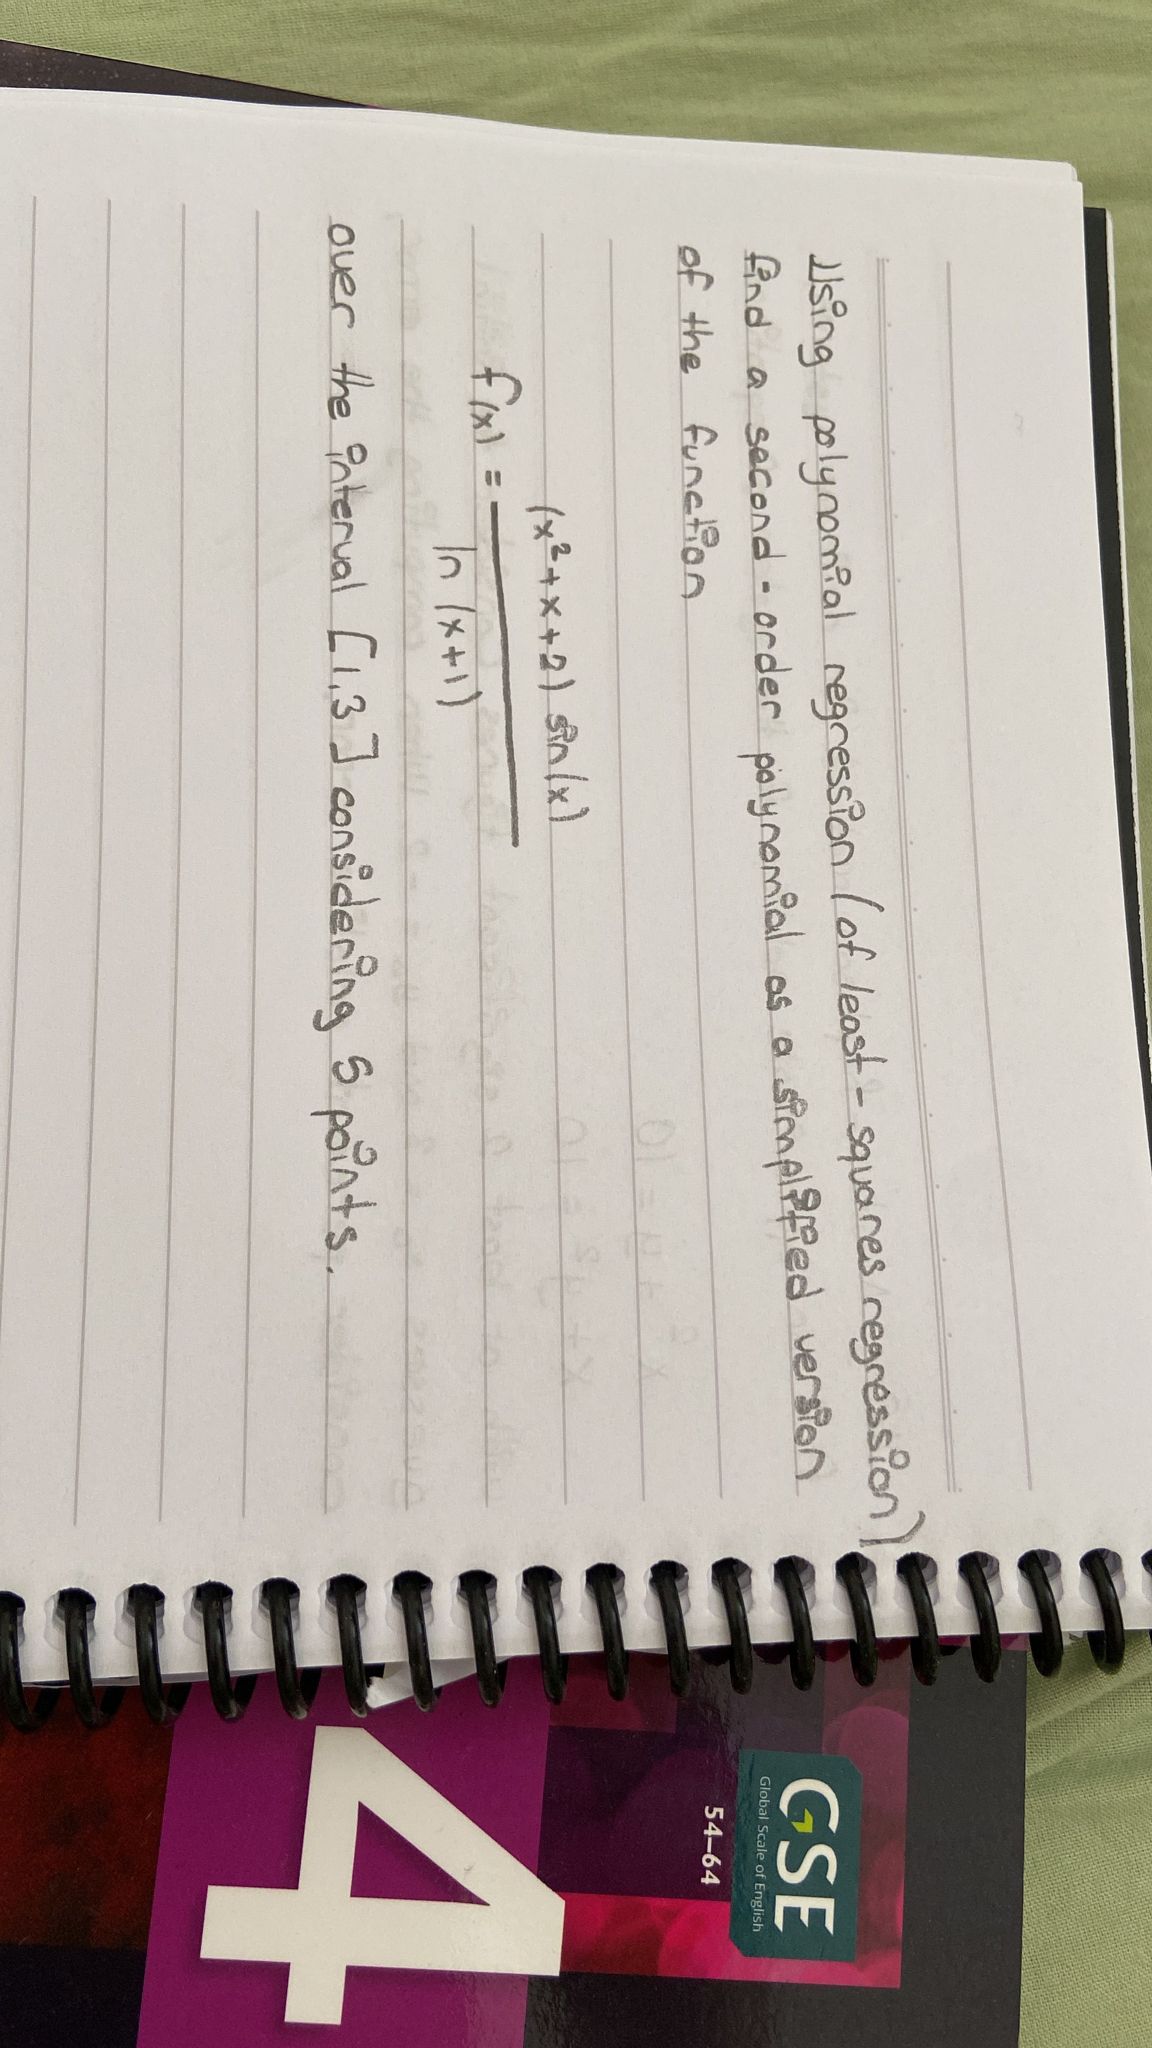 Using polynomial regression (of least-squares regression)
find a second-order polynomial as a simplified version
of the function
(x²+x+2) sin(x)
f(x) =
ln (x+1)
over the interval [1,3] considering 5 points.
GSE
Global Scale of English
54–64
4